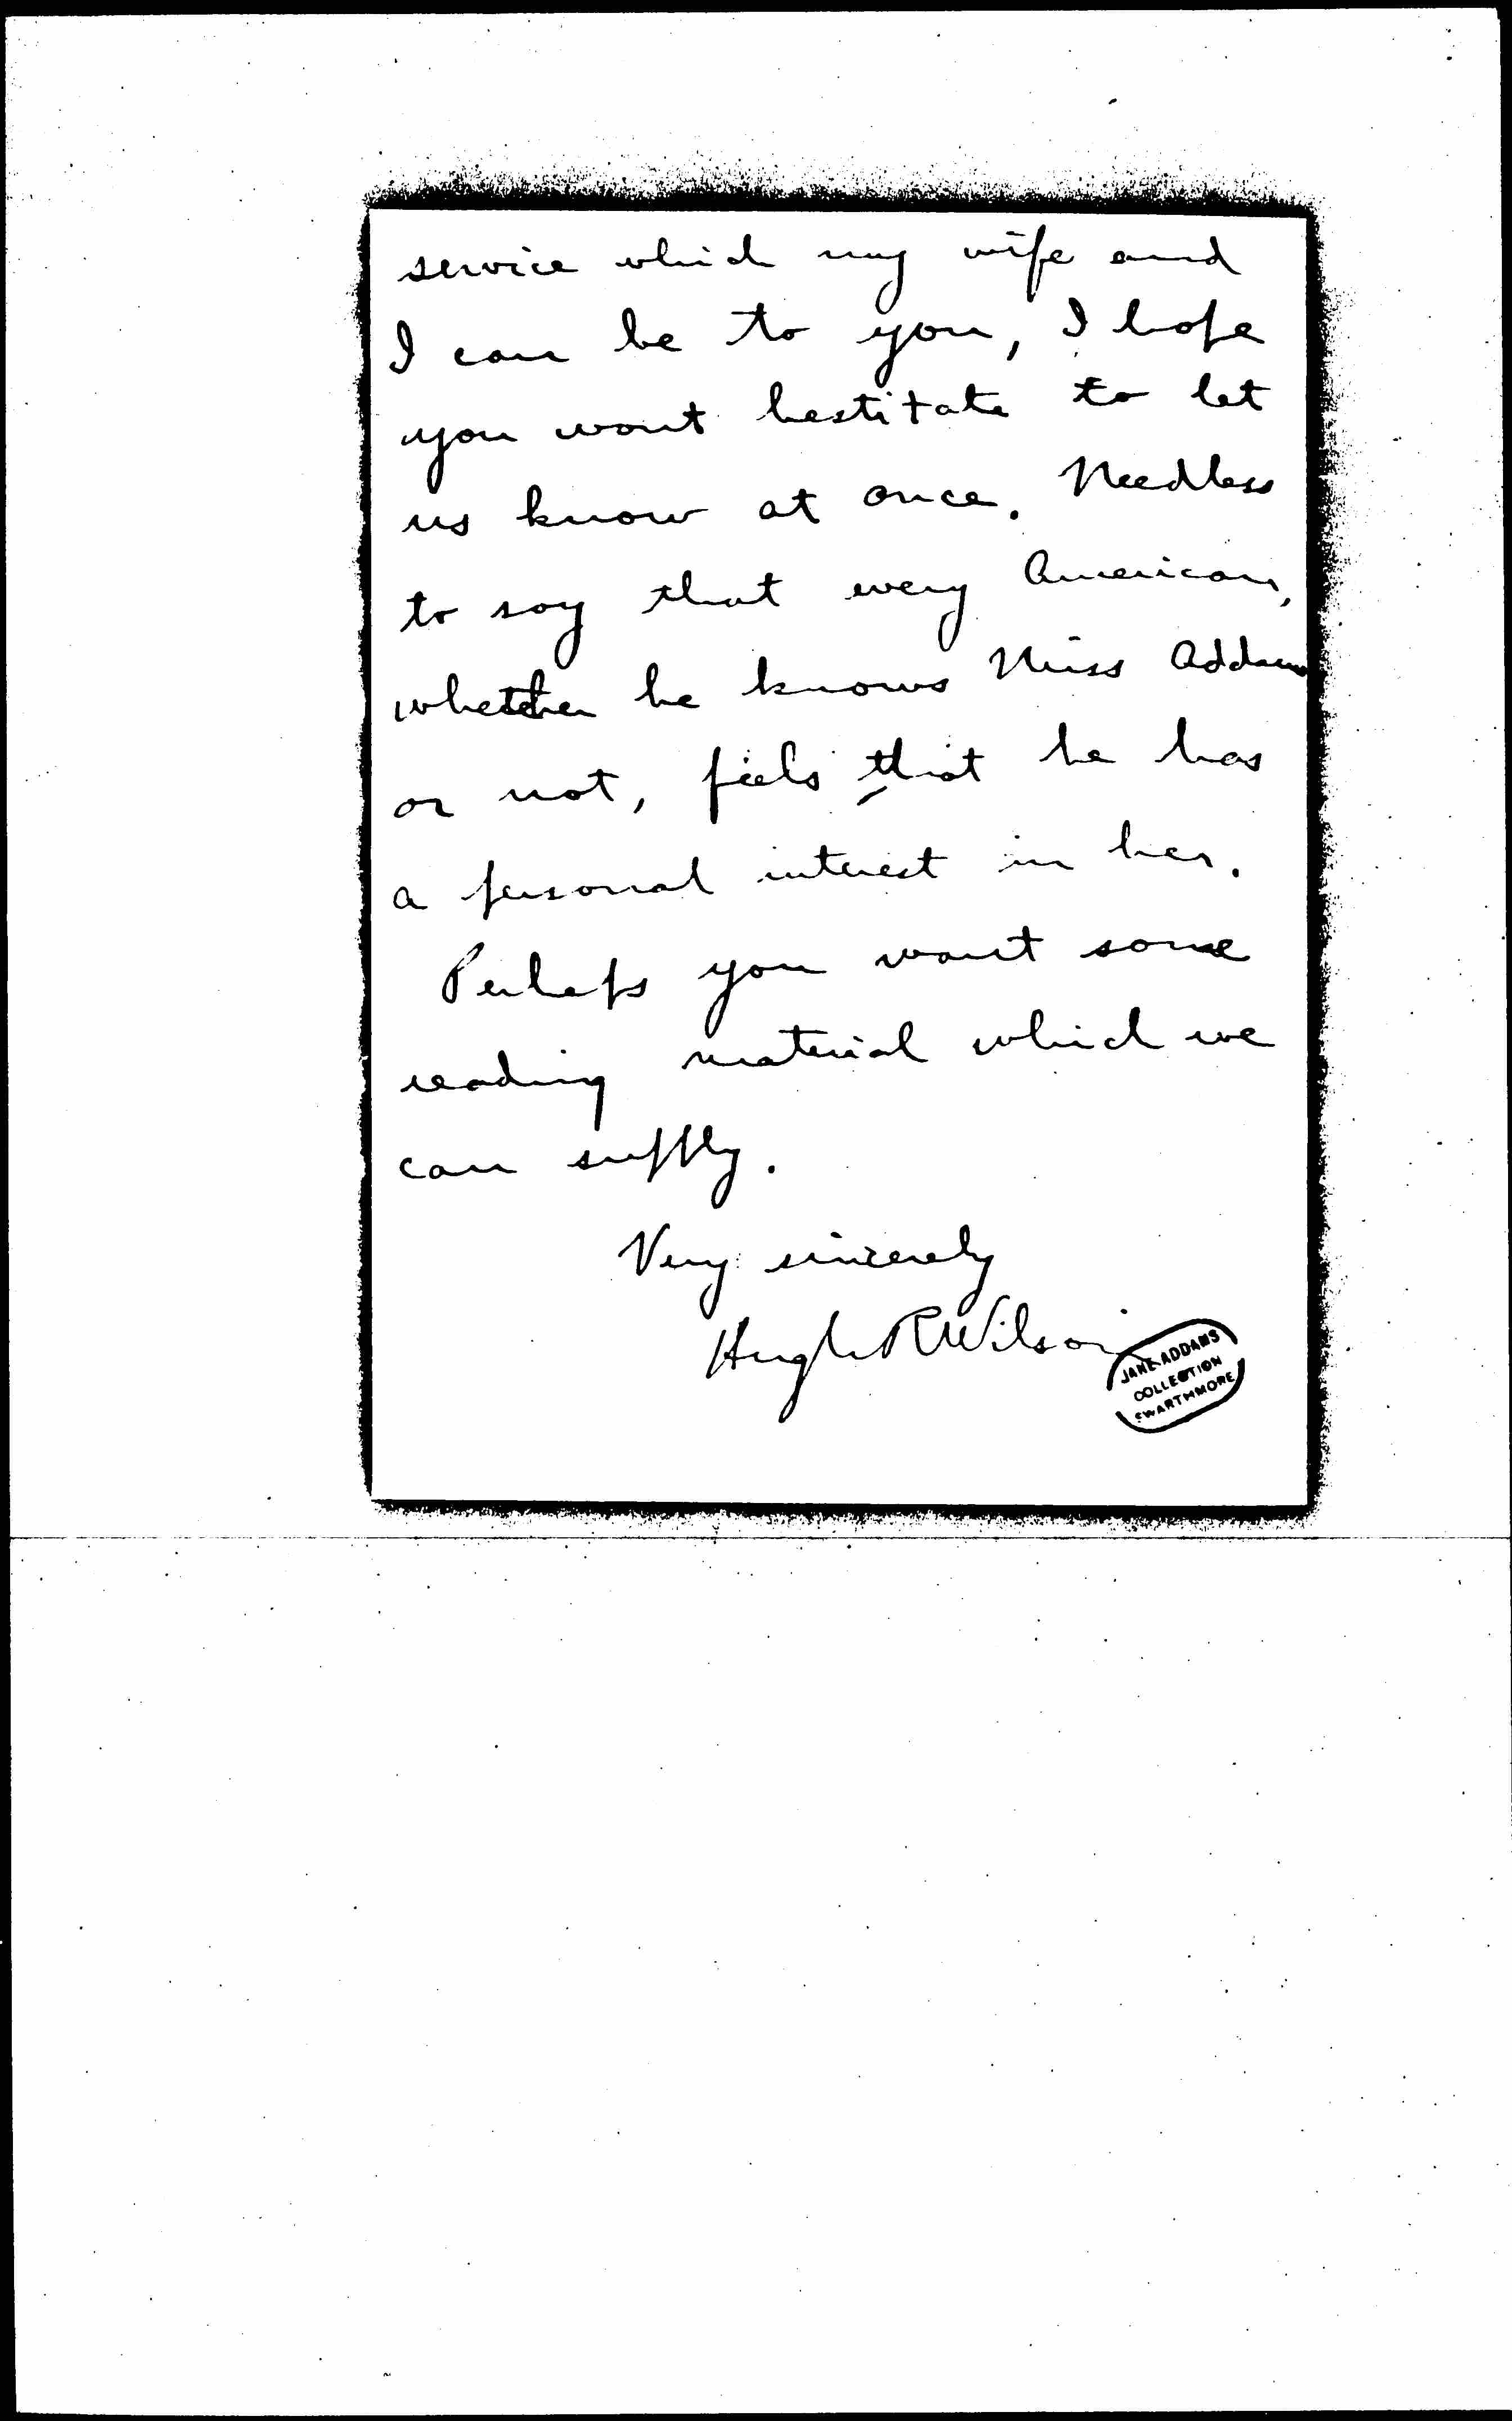 service which my wife and
I can be to you, I hope
you wont hestitate to let
us know at once. Needless
to say that every American,
whether he knows Miss Addams
or not, feels that he has
a personal interest in her.
Perhaps you want some
reading material which we
can supply.
Very sincerely
Hugh R Wilson
JANE ADDAMS
COLLECTION
SWARTHMORE